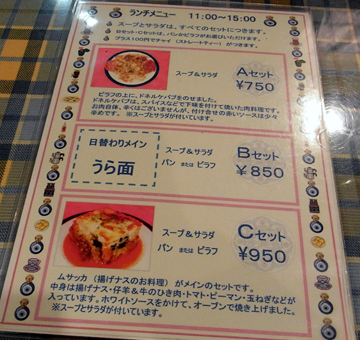 ランチメニュー　11:00～15:00
スープとサラダは、すべてのセットにつきます。
Bセット・Cセットは、パンかピラフがお選びいただけます。
プラス100円でチャイ（ストレートティー）がつきます。
スープ&サラダ
Aセット
¥750
ピラフの上に、ドネルケバブをのせました。
ドネルケバブは、スパイスなどで下味を付けて焼いた肉料理です。
お肉自体、辛くはございませんが、付け合せの赤いソースは少々
辛めです。 ※スープ&サラダが付いています。
日替わりメイン
うら面
スープ&サラダ
パン または ピラフ
Bセット
¥850
スープ&サラダ
パン または ピラフ
Cセット
¥950
ムサッカ（揚げナスのお料理）がメインのセットです。
中身は揚げナス・仔羊&牛のひき肉・トマト・ピーマン・玉ねぎなどが
入っています。ホワイトソースをかけて、オーブンで焼き上げました。
※スープとサラダが付いています。